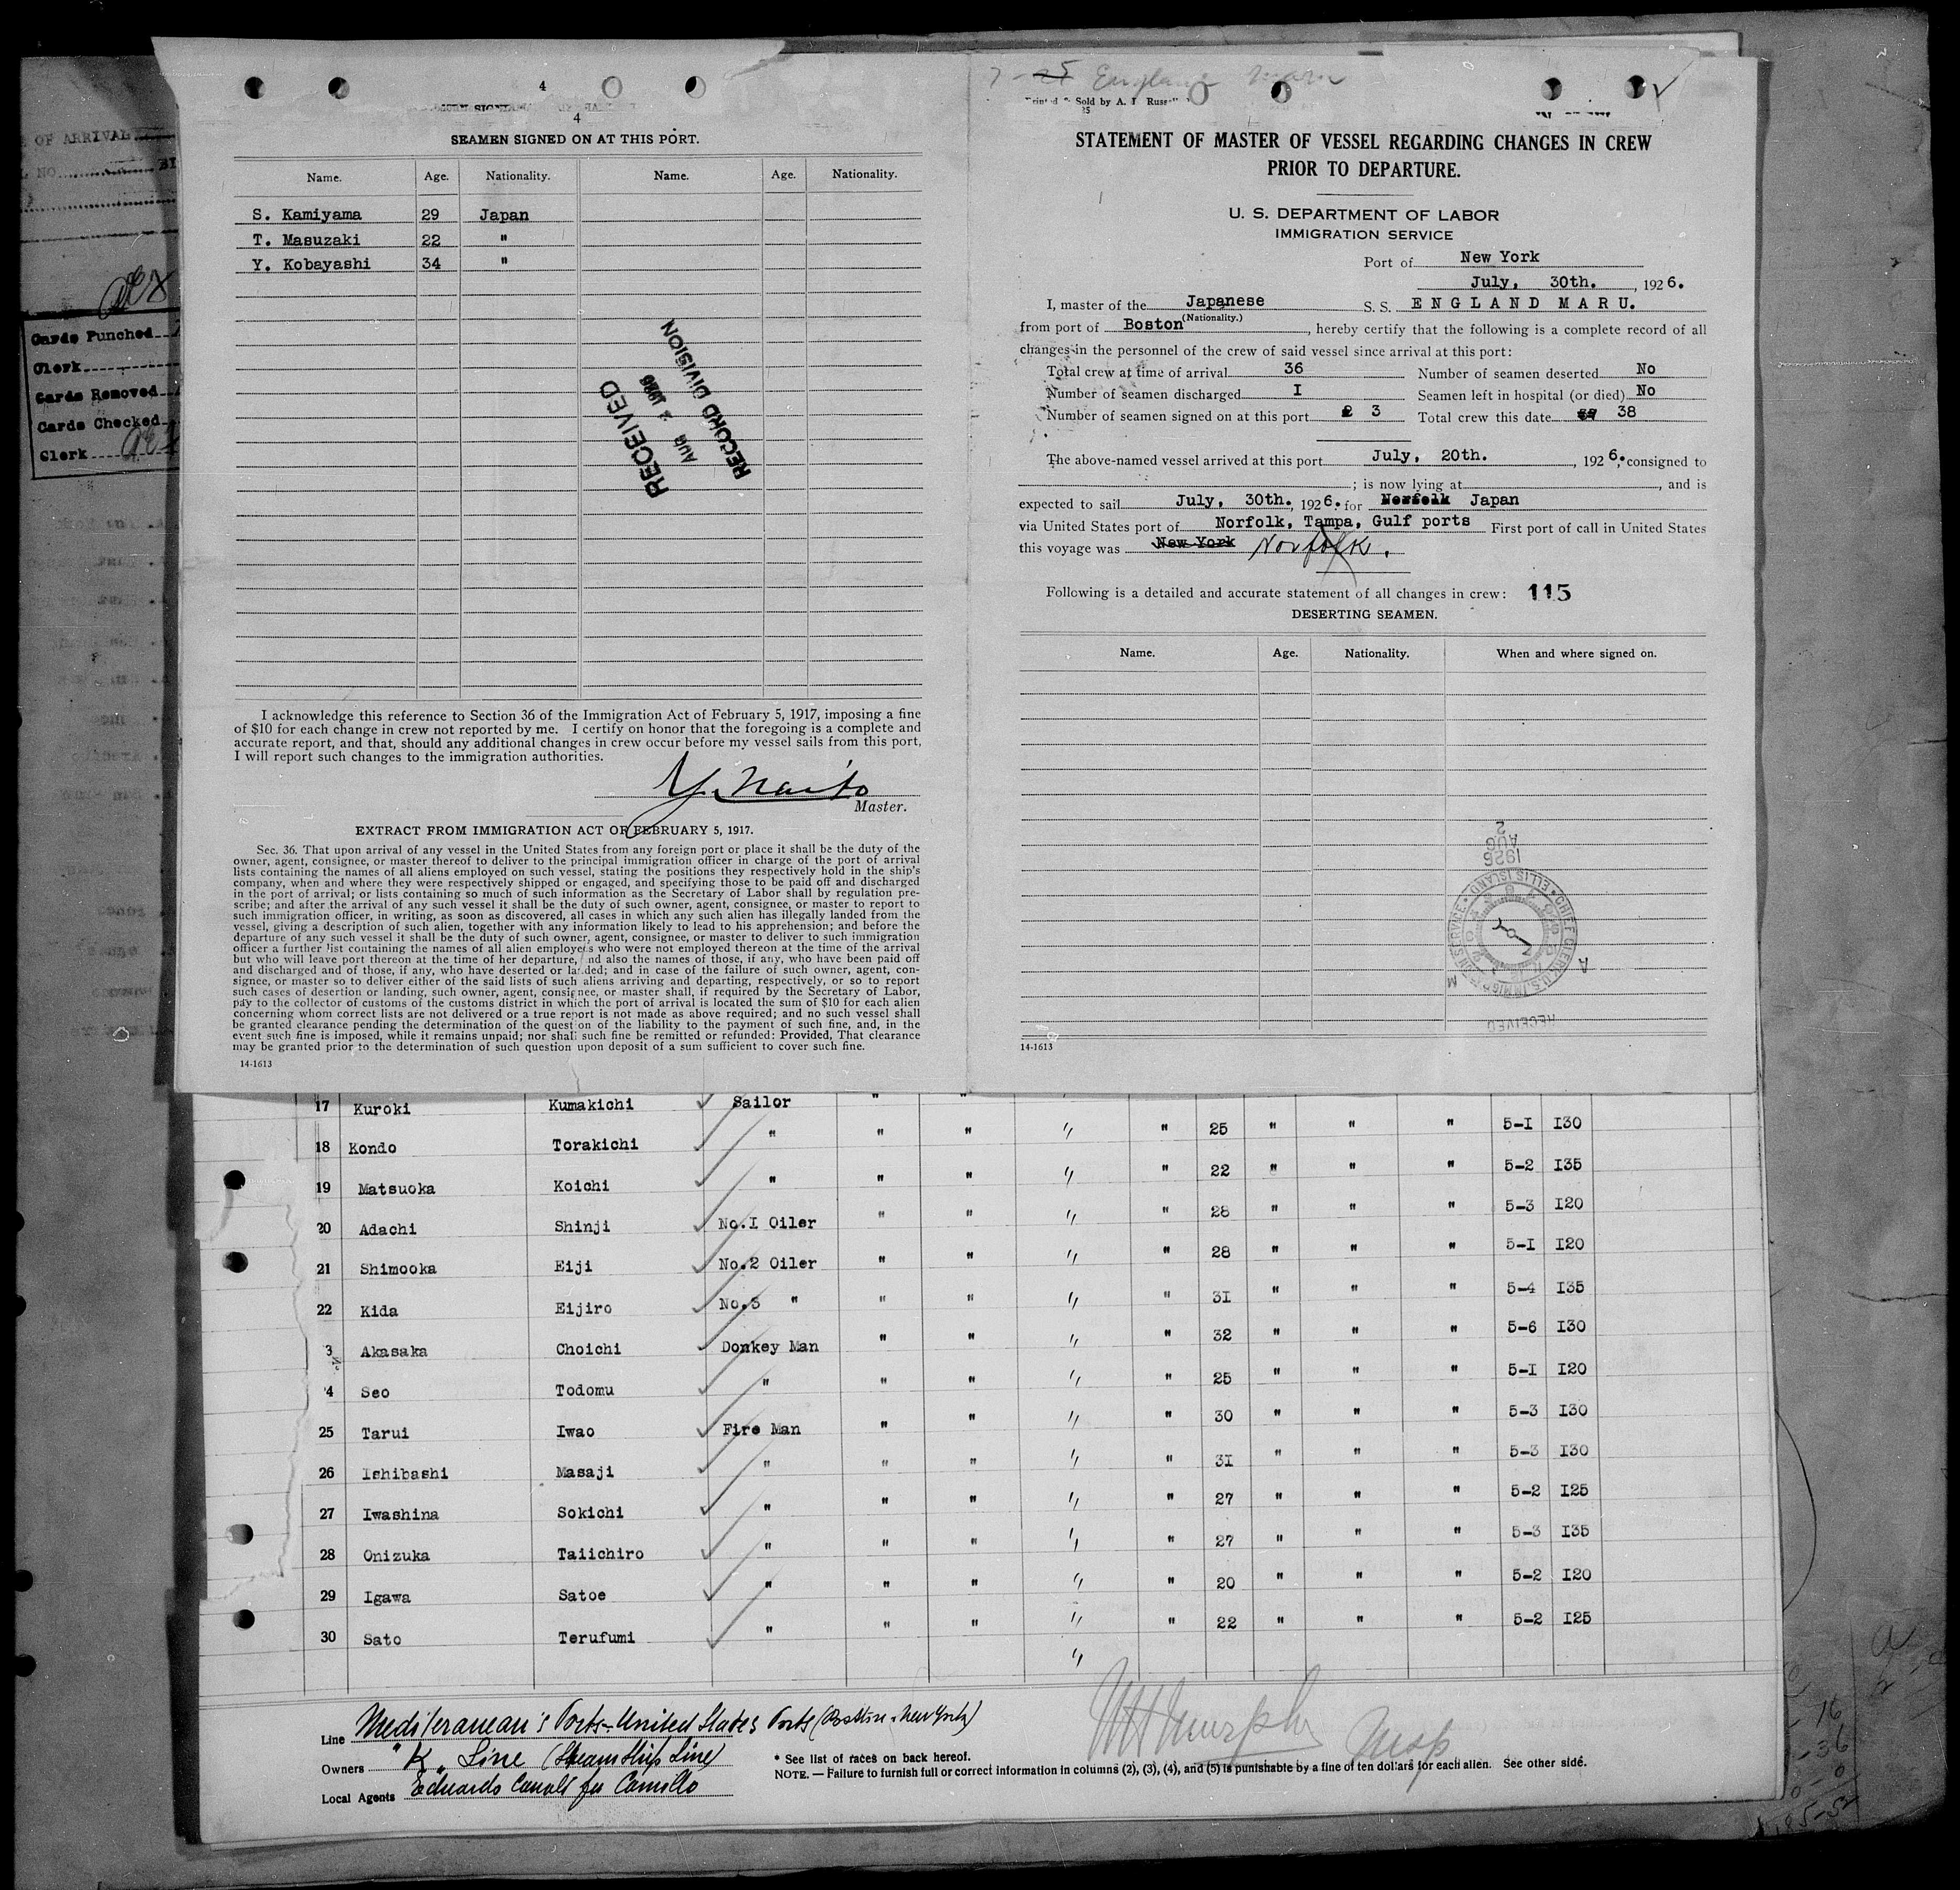 4
4
SEAMEN SIGNED ON AT THIS PORT.
Name. Age. Nationality. Name. Age. Nationality.
S. Kamiyama 29 Japan
T. Masuzaki 22 "
Y. Kobayashi 34 "
RECEIVED
AUG 2 1926
RECORD DIVISION
I acknowledge this reference to Section 36 of the Immigration Act of February 5, 1917, imposing a fine
of $10 for each change in crew not reported by me. I certify on honor that the foregoing is a complete and
accurate report, and that, should any additional changes in crew occur before my vessel sails from this port,
I will report such changes to the immigration authorities.
Y. Naito
Master.
EXTRACT FROM IMMIGRATION ACT OF FEBRUARY 5, 1917.
Sec. 36. That upon arrival of any vessel in the United States from any foreign port or place it shall be the duty of the
owner, agent, consignee, or master thereof to deliver to the principal immigration officer in charge of the port of arrival
lists containing the names of all aliens employed on such vessel, stating the positions they respectively hold in the ship's
company, when and where they were respectively shipped or engaged, and specifying those to be paid off and discharged
in the port of arrival; or lists containing so much of such information as the Secretary of Labor shall by regulation pre-
scribe; and after the arrival of any such vessel it shall be the duty of such owner, agent, consignee, or master to report to
such immigration officer, in writing, as soon as discovered, all cases in which any such alien has illegally landed from the
vessel, giving a description of such alien, together with any information likely to lead to his apprehension; and before the
departure of any such vessel it shall be the duty of such owner, agent, consignee, or master to deliver to such immigration
officer a further list containing the names of all alien employees who were not employed thereon at the time of the arrival
but who will leave port thereon at the time of her departure, and also the names of those, if any, who have been paid off
and discharged and of those, if any, who have deserted or landed; and in case of the failure of such owner, agent, con-
signee, or master so to deliver either of the said lists of such aliens arriving and departing, respectively, or so to report
such cases of desertion or landing, such owner, agent, consignee, or master shall, if required by the Secretary of Labor,
pay to the collector of customs of the customs district in which the port of arrival is located the sum of $10 for each alien
concerning whom correct lists are not delivered or a true report is not made as above required; and no such vessel shall
be granted clearance pending the determination of the question of the liability to the payment of such fine, and, in the
event such fine is imposed, while it remains unpaid; nor shall such fine be remitted or refunded: Provided, That clearance
may be granted prior to the determination of such question upon deposit of a sum sufficient to cover such fine.
14-1613
England Maru
Printed & Sold by A. I Russell
STATEMENT OF MASTER OF VESSEL REGARDING CHANGES IN CREW
PRIOR TO DEPARTURE.
U. S. DEPARTMENT OF LABOR
IMMIGRATION SERVICE
Port of New York
July, 30th., 1926.
I, master of the Japanese S. S. ENGLAND MARU.
(Nationality.)
from port of Boston, hereby certify that the following is a complete record of all
changes in the personnel of the crew of said vessel since arrival at this port:
Total crew at time of arrival 36 Number of seamen deserted No
Number of seamen discharged I Seamen left in hospital (or died) No
Number of seamen signed on at this port 2 3 Total crew this date 37 38
The above-named vessel arrived at this port July, 20th., 1926, consigned to
; is now lying at, and is
expected to sail July, 30th., 1926. for Norfolk Japan
via United States port of Norfolk, Tampa, Gulf ports First port of call in United States
this voyage was New York Norfolk.
Following is a detailed and accurate statement of all changes in crew: 115
DESERTING SEAMEN.
Name. Age. Nationality. When and where signed on.
1926 AUG 2
CHIEF CLERK U.S. IMMIGRATION SERVICE • ELLIS ISLAND
RECEIVED
14-1613
OF ARRIVAL
Cards Punched
Clerk
Cards Removed
Cards Checked
Clerk
17 Kuroki Kumakichi Sailor " "
18 Kondo Torakichi " " " " " 25 " " " 5-I I30
19 Matsuoka Koichi " " " " " 22 " " " 5-2 I35
20 Adachi Shinji No.I Oiler " " " " 28 " " " 5-3 I20
21 Shimooka Eiji No.2 Oiler " " " " 28 " " " 5-I I20
22 Kida Eijiro No.3 " " " " " 31 " " " 5-4 I35
3 Akasaka Choichi Donkey Man " " " " 32 " " " 5-6 I30
4 Seo Todomu " " " " " 25 " " " 5-I I20
25 Tarui Iwao Fire Man " " " " 30 " " " 5-3 I30
26 Ishibashi Masaji " " " " " 31 " " " 5-3 I30
27 Iwashina Sokichi " " " " " 27 " " " 5-2 I25
28 Onizuka Taiichiro " " " " " 27 " " " 5-3 I35
29 Igawa Satoe " " " " " 20 " " " 5-2 I20
30 Sato Terufumi " " " " " 22 " " " 5-2 I25
Line Mediteranean's Ports-United States Ports (Boston - New York)
Owners "K" Line (Steamship Line)
Local Agents Eduardo Canali fu Camillo
* See list of races on back hereof.
NOTE. — Failure to furnish full or correct information in columns (2), (3), (4), and (5) is punishable by a fine of ten dollars for each alien. See other side.
WH Murphy Insp